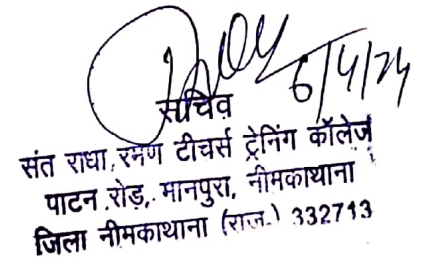 6/4/24
सचिव
संत राधा रमण टीचर्स ट्रेनिंग कॉलेज
पाटन रोड़, मानपुरा, नीमकाथाना
जिला नीमकाथाना (राज.) 332713